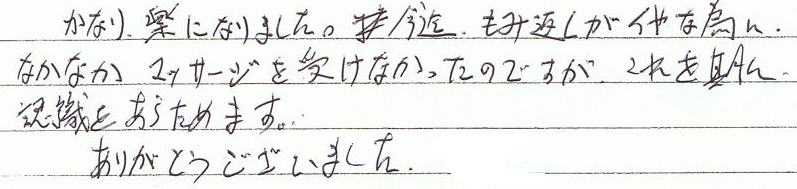 かなり、楽になりました。今迄、もみ返しがイヤな為に、
なかなかマッサージを受けなかったのですが、これを期に、
認識をあらためます。
ありがとうございました。